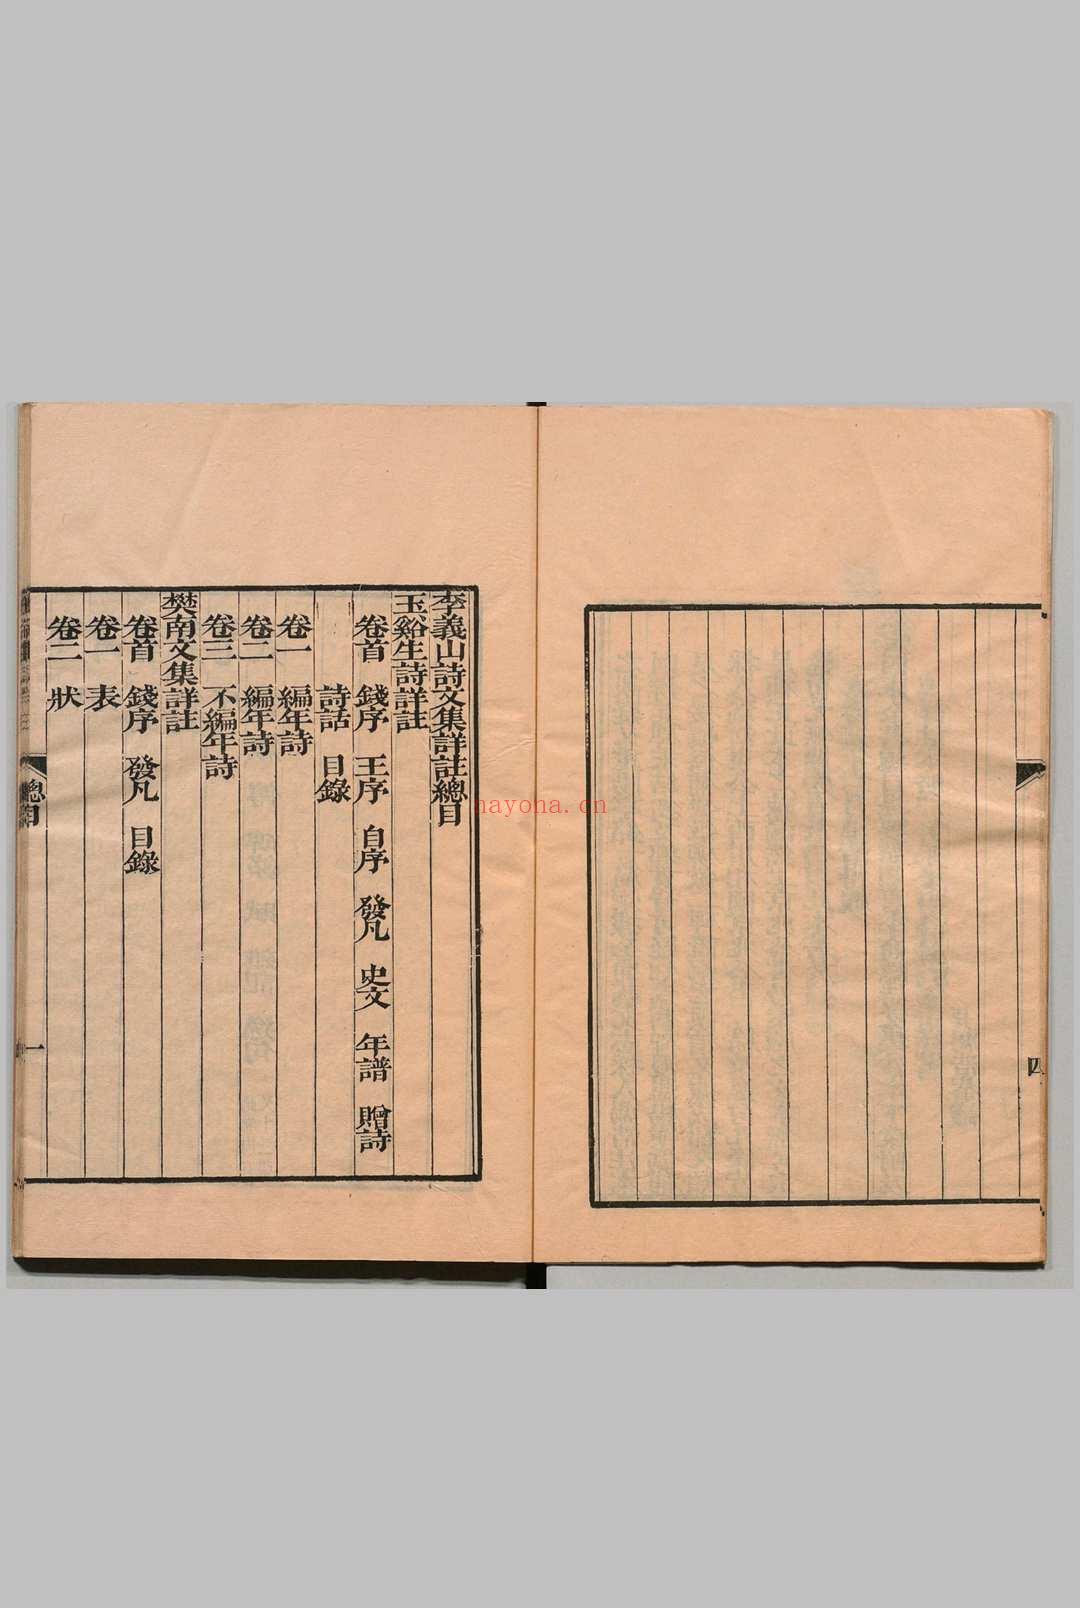 李義山詩文集詳註總目
玉谿生詩詳註
卷首 錢序 王序 自序 發凡 史文 年譜 贈詩
詩話 目錄
卷一 編年詩
卷二 編年詩
卷三 不編年詩
樊南文集詳註
卷首 錢序 發凡 目錄
卷一 表
卷二 狀
總目 一
四
nayona.cn